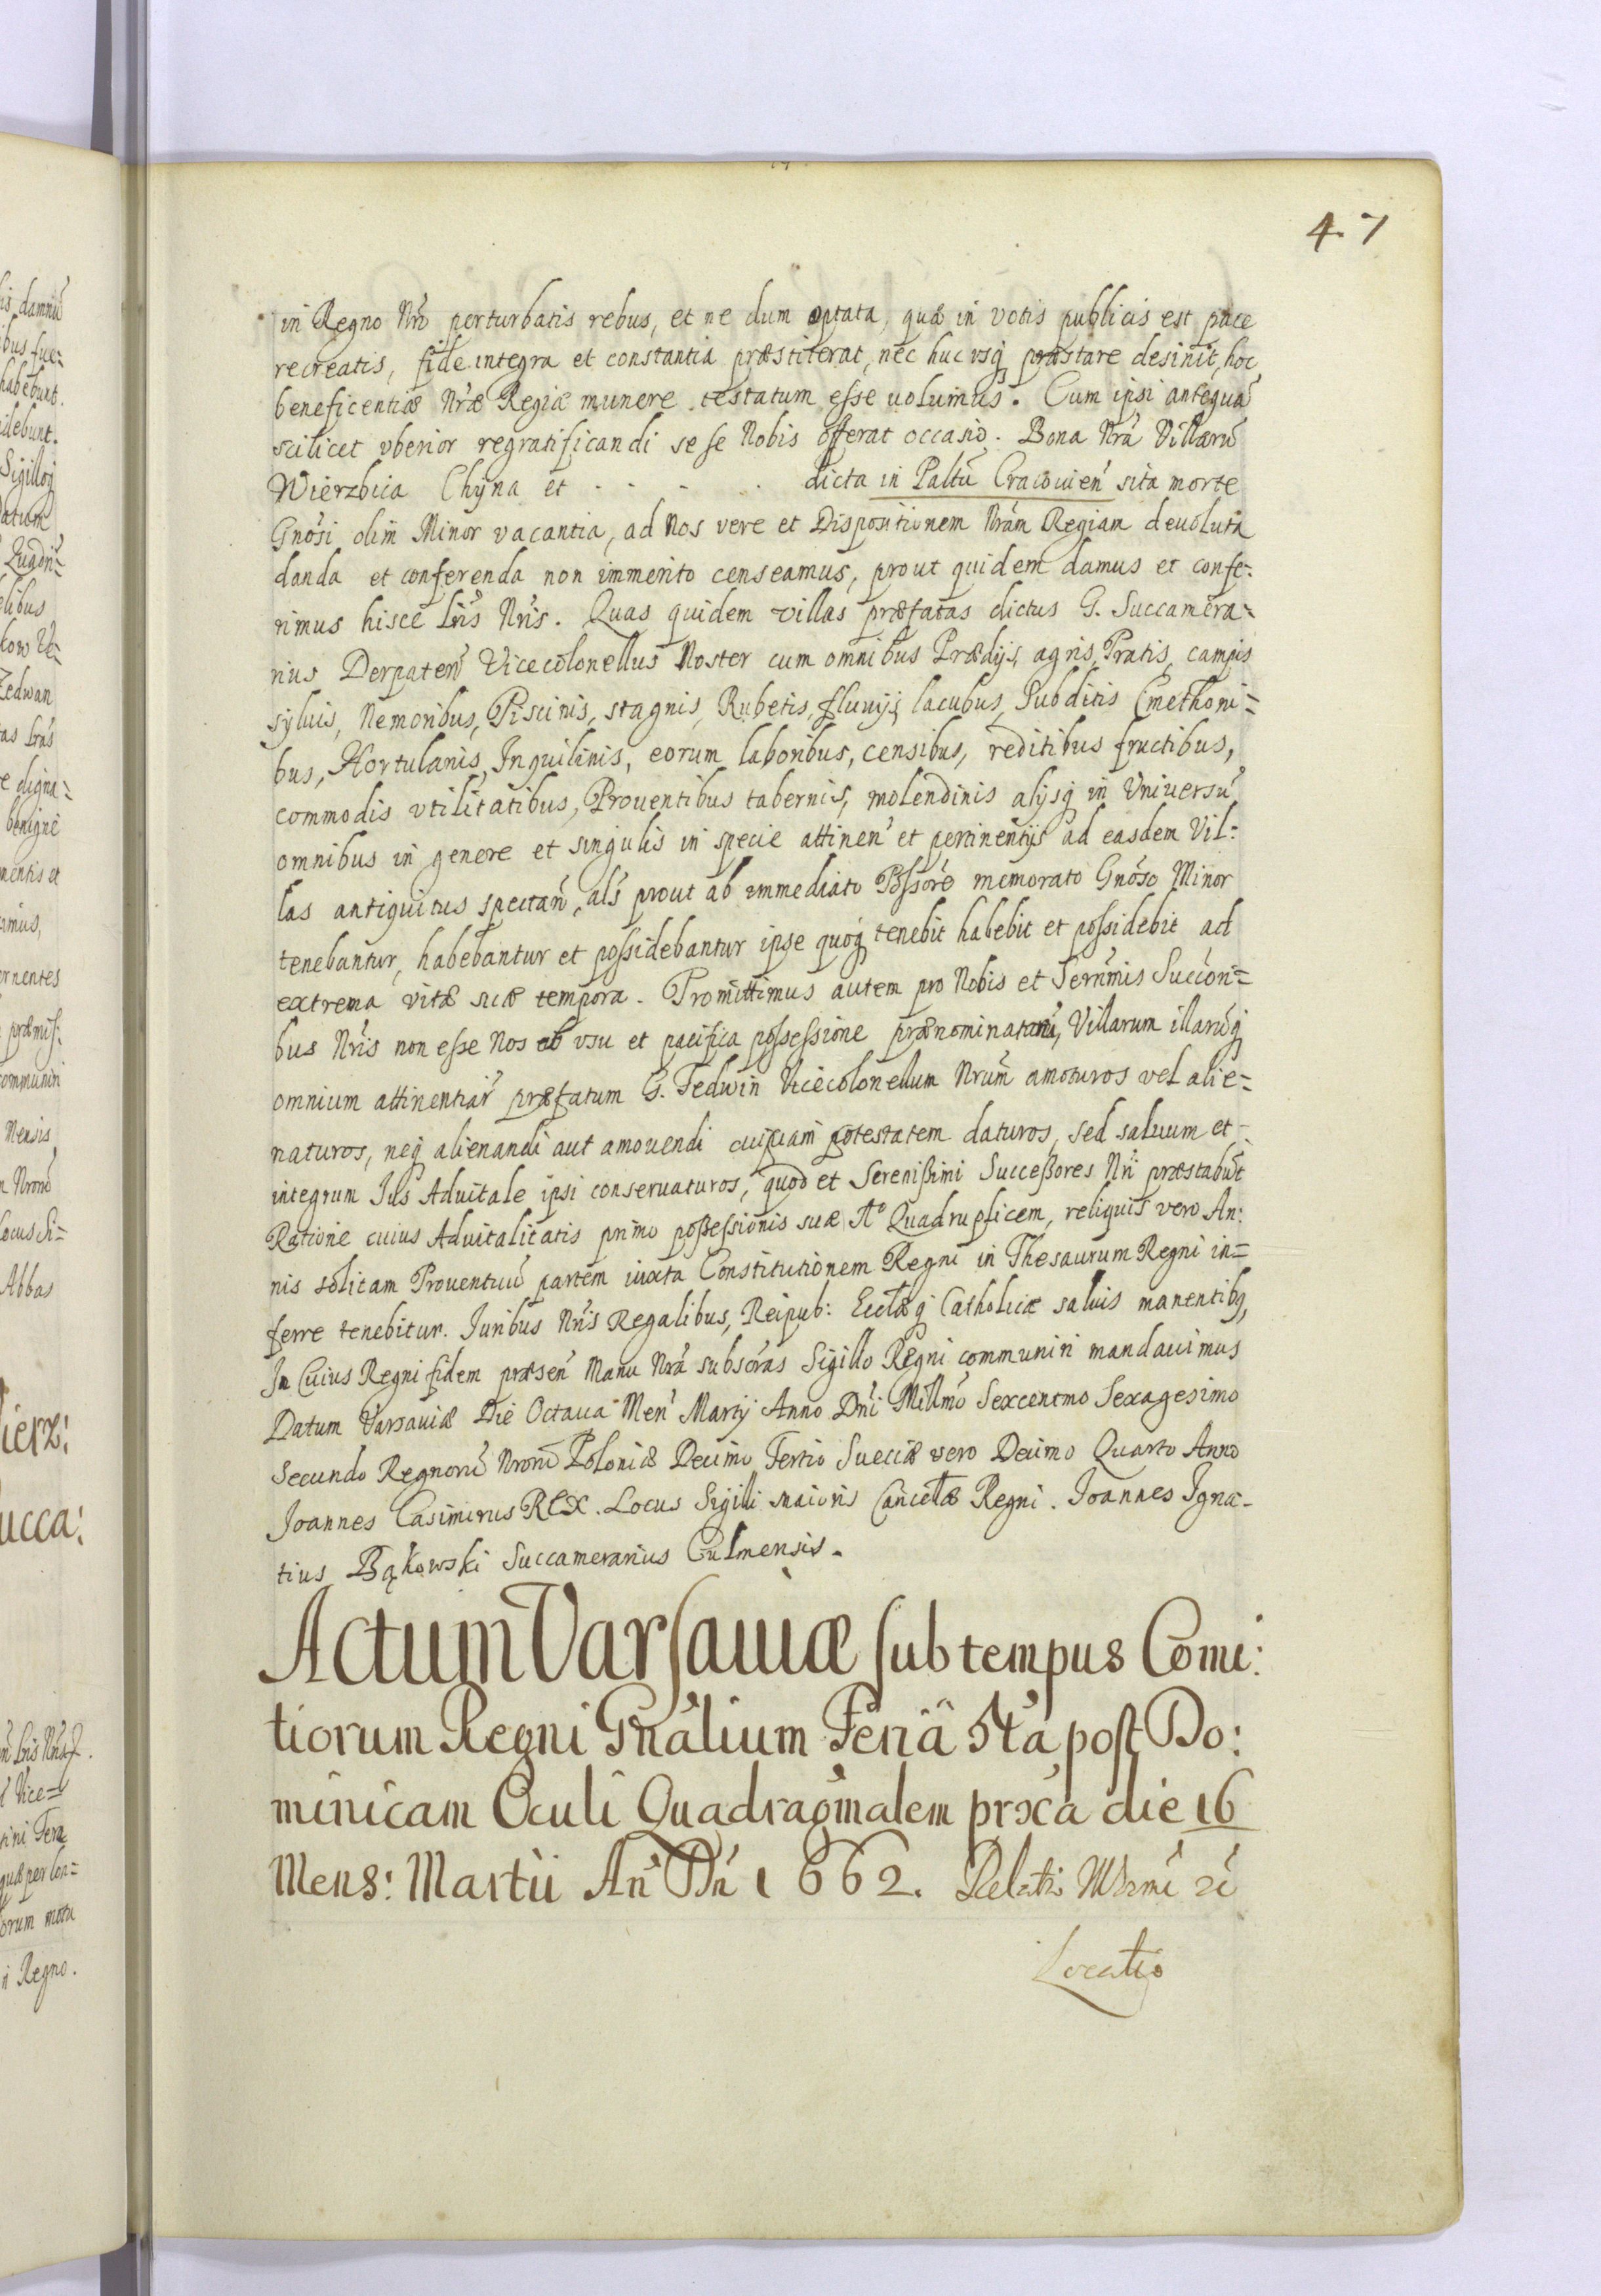 47
in Regno Nrõ perturbatis rebus, et ne dum optata, quæ in votis publicis est pace
recreatis, fide integra et constantia præstiterat, nec huc vsq præstare desinit, hoc
beneficentiæ Nræ Regiæ munere testatum esse uolumus. Cum ipsi antequã
scilicet vberior regratificandi se se Nobis offerat occasio. Bona Nrã Villarũ
Wierzbica Chyna et - - - - - dicta in Paltũ Cracouień sita morte
Gnõsi olim Minor vacantia, ad Nos vere et Dispositionem Nrãm Regiam deuoluta
danda et conferenda non immerito censeamus, prout quidem damus et confe:
rimus hisce Lris Nris. Quas quidem villas præfatas dictus G. Succamera=
rius Derpateń Vicecolonellus Noster cum omnibus Prædijs, agris, Pratis, campis
syluis, Nemoribus, Piscinis, stagnis, Rubetis, fluuijs, lacubus, Subditis Cmethoni=
bus, Hortulanis, Inquilinis, eorum laboribus, censibus, reditibus fructibus,
commodis vtilitatibus, Prouentibus tabernis, molendinis alijsq in Vniuersũ
omnibus in genere et singulis in specie attineń et pertinentijs ad easdem Vil=
las antiquitus spectań, als prout ab immediato Possore memorato Gnoso Minor
tenebantur, habebantur et possidebantur ipse quoq tenebit habebit et possidebit ad
extrema vitæ suæ tempora. Promittimus autem pro Nobis et Sernmis Succori=
bus Nris non esse Nos ab vsu et pacifica possessione prænominatarũ, Villarum illarũq
omnium attinentiar præfatum G. Tedwin Vicecolonellum Nrum amoturos vel alie=
naturos, neq alienandi aut amouendi cuipiam potestatem daturos, sed saluum et
integrum Ius Aduitale ipsi conseruaturos, quod et Serenissimi Successores Nri præstabũt
Ratione cuius Aduitalitatis primo possessionis suæ Aº Quadruplicem, reliquis vero An:
nis solitam Prouentuũ partem iuxta Constitutionem Regni in Thesaurum Regni in=
ferre tenebitur. Iuribus Nris Regalibus, Reipub: Ecclæq Catholicæ saluis manentibq,
In Cuius Regni fidem præseń Manu Nrã subscras Sigillo Regni communiri mandauimus
Datum Varsauiæ Die Octaua Meń Martij Anno Dni Millmo Sexcentmo Sexagesimo
Secundo Regnorũ Nrorũ Poloniæ Decimo Tertio Sueciæ vero Decimo Quarto Anno
Joannes Casimirus REX. Locus Sigilli maioris Cancelæ Regni. Joannes Igna-
tius Bąkowski Succamerarius Culmensis.
Actum Varsauiæ sub tempus Comi:
tiorum Regni Gnãlium Feriã 5tã post Do:
minicam Oculi Quadragmalem prxã die 16
Mens: Martii Ań Dń 1662.
Locatio